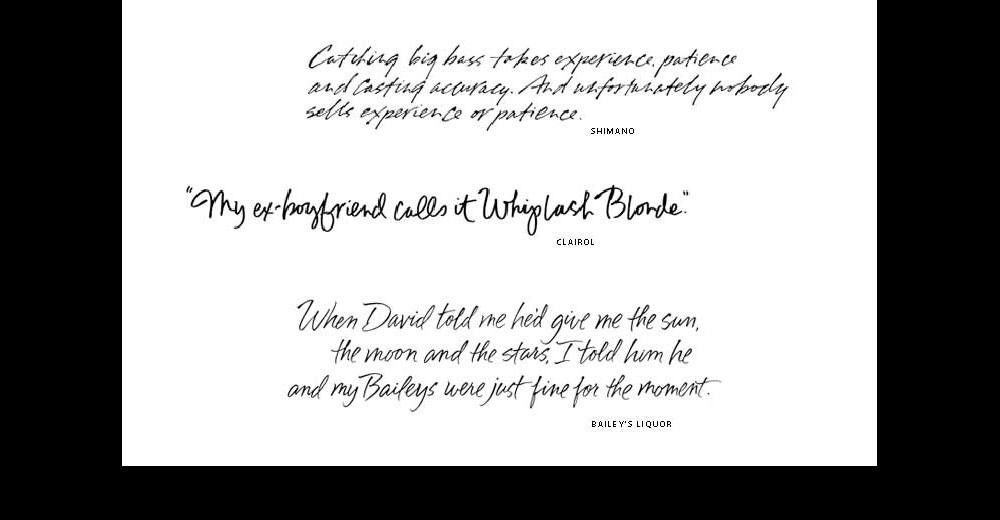 Catching big bass takes experience, patience
and casting accuracy. And unfortunately nobody
sells experience or patience.
SHIMANO
"My ex-boyfriend calls it Whiplash Blonde."
CLAIROL
When David told me he'd give me the sun,
the moon and the stars, I told him he
and my Baileys were just fine for the moment.
BAILEY'S LIQUOR